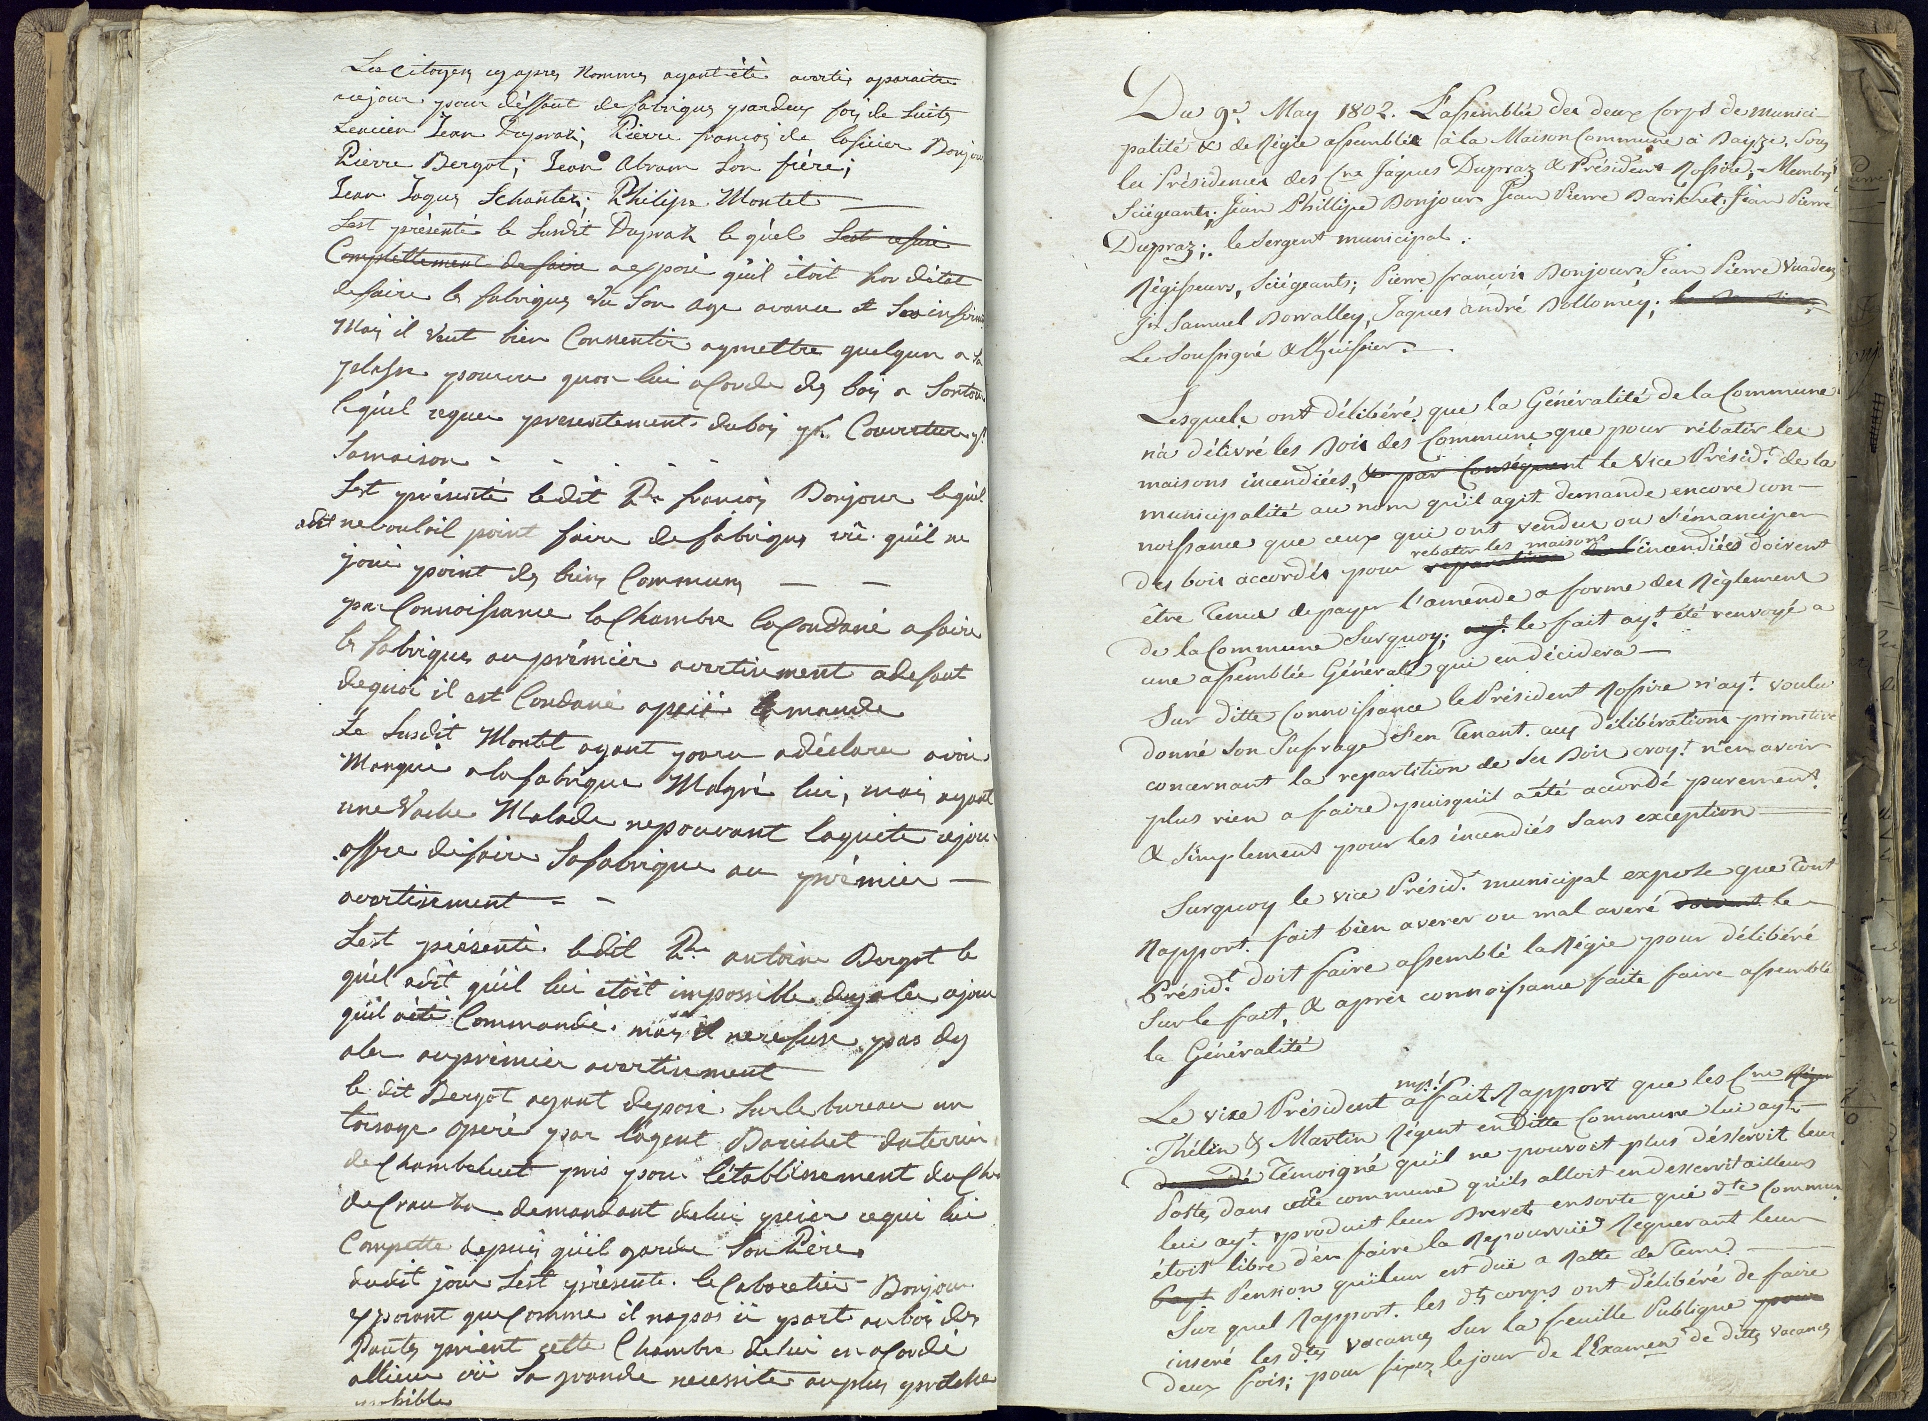 Les Citoyens cy apres Nommes ayant été avertis aparaitre
cejour pour déffaut de fabriques par deux fois de suite
Jean Dupraz; Pierre françois de Bonjour
Pierre Bergot; Jean Abram son frère;
Jean Jaques Schanter; Philipe Montet
Sest présenté le susdit Dupraz le quel Sest refusé
Complettement de faire a exposé quil étoit hor détat
defaire les fabriques vu Son age avance et Ses infirmi
Mais il veut bien Conssentir aymettre quelqun a Sa
plasse pourvu quon lui acorde des bois a Sontour
lequel requer presentement dubois pr. Couverture pr.
Samaison
Sest présenté ledit Pre françois Bonjour lequel
adit nevouloil point faire defabriques vû quil ne
joui point des biens Communs
par Connoissance la Chambre la Condané a faire
les fabriques au prémier avertissement adefaut
dequoi il est Condané a lamande
Le Susdit Montet ayant paru adéclaré avoir
Manqué alafabrique Malgré lui, mais ayant
une Vache Malade nepouvant laquité cejour
offre defaire Safabrique au prémier
avertissement
Sest présenté ledit Pre antoine Bergot le
quel adit quil lui étoit impossible dy aler ajour
quil aété Commandé. mais il nerefuse pas dy
aler auprémier avertissement
le dit Bergot ayant déposé Surle bureau un
toisage operé par lagent Barichet duterrin
de Chambeluet pris pour létablissement du Ch
deCrau demandant delui paier cequi lui
Compette depuis quil garde Son Père
dudit jour Sest présenté le Cabaretier Bonjour
exposant que Comme il napas û part aubois des
Pautes prient cette Chambre delui en acordé
allieur vû Sa grande necessite auplus protche
posible

Du 9e. May 1802. L'assemblée des deux Corps de munici-
palité & de Régie assemblée à la Maison Commune à Bayze, Sous
les Présidences des Cns Jaques Dupraz & Président Rossire; Membres
Sciégeants; Jean Phillipe Bonjour Jean Pierre Barichet, Jean Pierre
Dupraz; le Sergent municipal.
Régisseurs, Sciégeants; Pierre françois Bonjour, Jean Pierre Vuadens
Jn Samuel Dowalley, Jaques André Dollomey;
Le Soussigné & l'huissier.
Lesquels ont délibéré que la Généralité de la Commune
n'a délivré les Bois des Communs que pour rébatir les
maisons incendiées, & par Conséquent le Vice Présidt. de la
municipalité au nom qu'il agit demande encore con-
noissance que ceux qui ont vendus ou s'émanciper
des bois accordés pour rebatir les maisons reparation des incendiées doivent
être Tenus de payer l'amende a forme des Règlements
de la Commune Surquoy; le fait ayt. été renvoyé a
une assemblée Générale qui en décidera
Sur ditte Connoissance le Président Rossire n'ayt. voulu
donné son Sufrage S'en Tenant aux délibérations primitive
concernant la repartition de Ses Bois croyt. n'en avoir
plus rien a faire puisqu'il a été accordé purement
& simplement pour les incendiés Sans exception
Surquoy le vice Présidt. municipal expose que Tout
Rapport fait bien averer ou mal averé doivent le
Présidt. doit faire assemblé la Régie pour délibéré
Sur le fait, & après connoissance faite faire assemblé
la Généralité
Le vice Président mpl. a fait Rapport que les Cns
Thélin & Martin Régent en Ditte Commune lui ayt.
Témoigné qu'il ne pouvoit plus déservit leur
Postes dans cette commune quils alloit en desservit ailleurs
lui ayt. produit leur Brevet ensorte que dte Commun
étoit libre d'en faire la Repourvüe Requerant leur
Pension quileur est düe a Ratte de Tems.
Sur quel Rapport les dts corps ont délibéré de faire
inseré les dtes vacances Sur la feuille Publique pour
deux fois; pour fixez le jour de l'Examen de dittes vacances